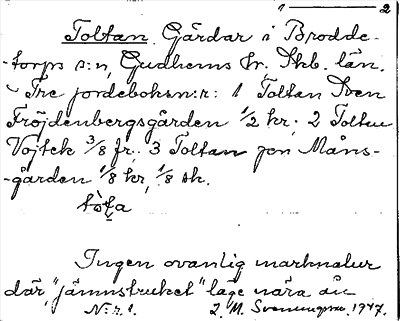 1 — 2
Toltan. Gårdar i Brodde-
-torps s:n, Gudhems hr. Skb. län.
Tre jordeboksn:r: 1 Toltan Sven
Fröjdenbergsgården 1/2 kr; 2 Toltan
Vojtek 3/8 fr; 3 Toltan Jon Måns-
-gården 1/8 kr, 1/8 sk.
Ingen ovanlig marknatur
där, "jämnstruket" läge nära ån
N:r 1. L. M. Svenungsson. 1947.